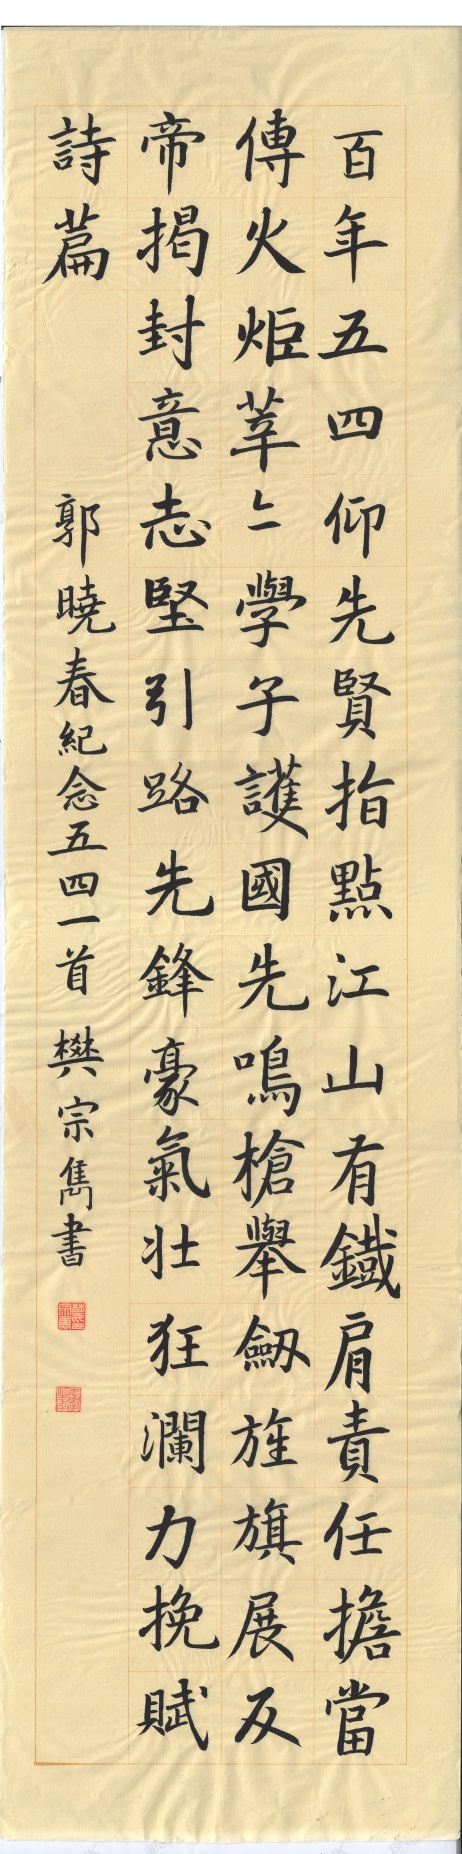 百年五四仰先賢指點江山有鐵肩責任擔當
傳火炬莘〻學子護國先鳴槍舉劔旌旗展反
帝揭封意志堅引路先鋒豪氣壯狂瀾力挽賦
詩篇
郭曉春紀念五四一首 樊宗雋書